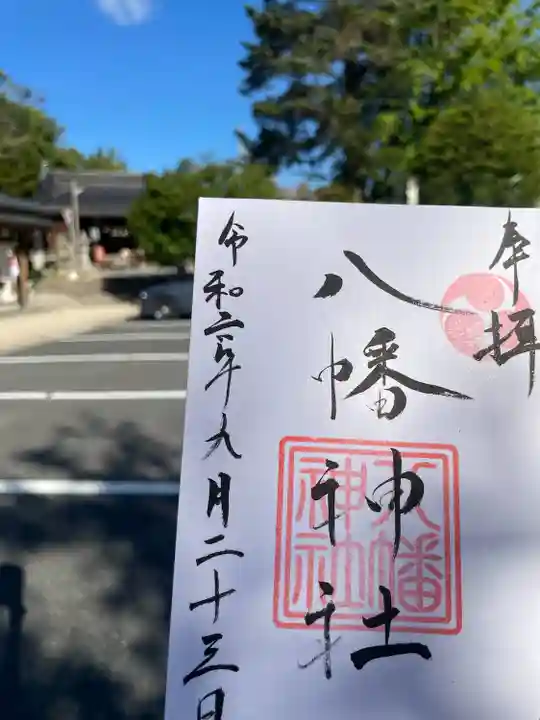 奉拝
八幡神社
八幡神社
令和六年九月二十三日